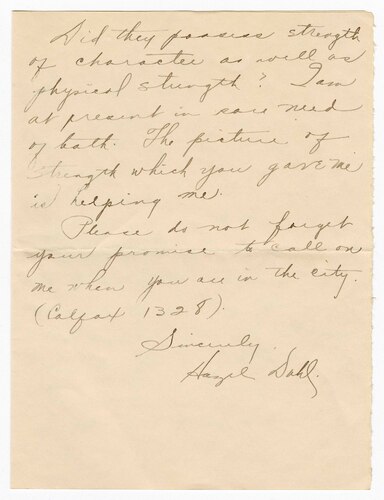 Did they possess strength
of character as well as
physical strength? I am
at present in sore need
of both. The picture of
strength which you gave me
is helping me.
Please do not forget
your promise to call on
me when you are in the city.
(Colfax 1328).
Sincerely.
Hazel Dahl.